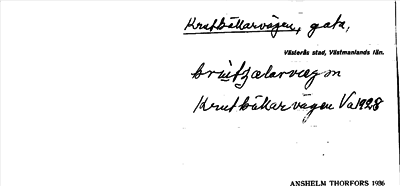 Krutkällarvägen, gata,
Västerås stad, Västmanlands län.
Krutkällarvägen Va 1928
ANSHELM THORFORS 1986